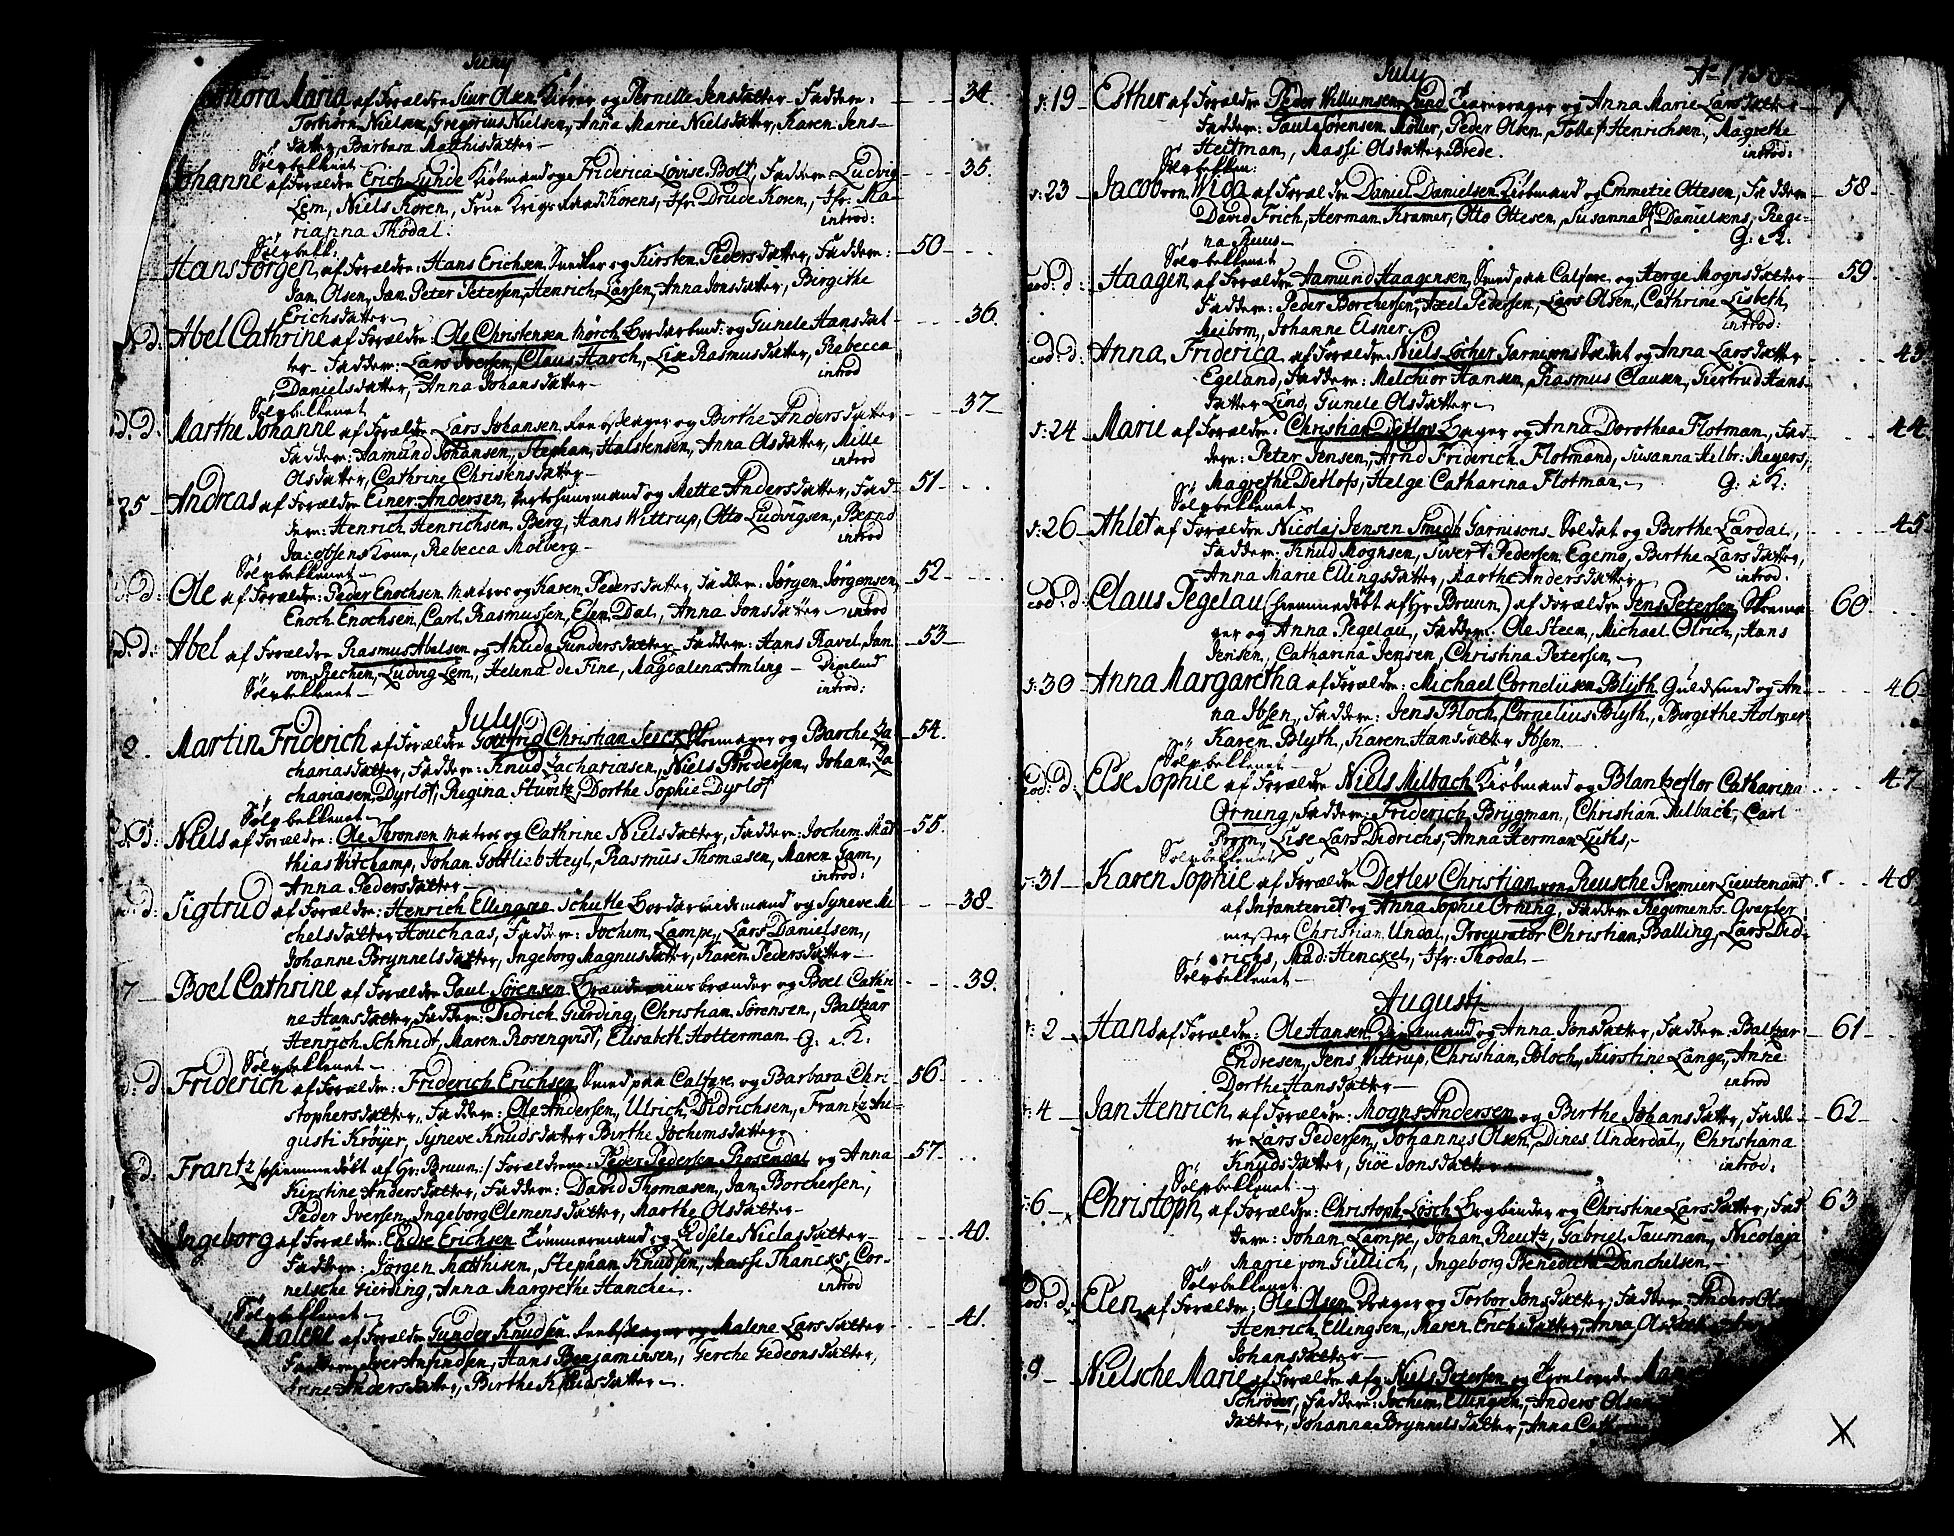 Maria af Forældre Siur Olsen og Pernille Jensdatter Faddere: 34.
Torbiørn Nielsen, Gregorius Nielsen, Anna Marie Nielsdatter, Karen Jens-
datter, Barbara Mathisdatter
Sølvbekkenet
Johanne af Forældre Erich Lunde Kiøbmand og Friderica Lovise Bolt, Faddere Ludvig 35.
Lem, Niels Koren, Frue Krigsraad Korens, Jfr. Drude Koren, Jfr. Ma-
rianna Thodal. introd:
Sølvbekk:
Hans Jørgen, af Forældre: Hans Erichsen og Kirsten Pedersdatter, Faddere: 50
Jan Olsen, Jan Peter Petersen, Henrich Larsen, Anna Jonsdatter, Birgithe
Erichsdatter
d: Abel Cathrine af Forældre: Ole Christensen Mørch og Gunele Hansdat 36.
ter Faddere: Lars Iversen, Claus Harch, Lisa Rasmusdatter, Rebecca
Danielsdatter, Anna Johansdatter introd
Sølvbekkenet
d. d. Marthe Johanne af Forældre Lars Johansen og Birthe Andersdatter 37
Faddere: Aamund Johansen, Stephan Halstensen, Anna Olsdatter, Mille
Olsdatter, Cathrine Christensdatter introd
25 Andreas af Forældre Einer Andersen, og Mette Andersdatter, Fad- 51
dere: Henrich Henrichsen Berg, Hans Wittrup, Otto Ludvigsen, Bernd
Jacobsens Kone, Rebecca Molberg introd
Sølvbekkenet
d: Ole af Forældre: Peder Enochsen Matros og Karen Pedersdatter, Faddere: Jørgen Jørgensen, 52
Enoch Enochsen, Carl Rasmussen, Elen Dal, Anna Jonsdatter introd
d: Abel af Forældre Rasmus Abelsen og Ahlida Gundersdatter Faddere: Hans Ravel, Jan 53
von Rechen, Ludvig Lem, Helena de Fine, Magdalena Amling
Sølvbekkenet introd:
July
2. Martin Friderich af Forældre Gottfrid Christian og Barche Za 54.
chariasdatter, Faddere: Knud Zachariasen, Niels Brodersen, Johan Za
chariasen Dyrlof, Regina Stuvitz, Dorthe Sophie Dyrlof
Sølvbekkenet
d: Niels af Forældre: Ole Thronsen Matros og Cathrine Nielsdatter, Faddere: Jochem Mat 55.
thias Vitchamp, Johan Gottlieb Heyl, Rasmus Thomasen, Maren Gam,
Anna Pedersdatter introd:
d: Sigtrud af Forældre: Henrich Ellingsen Schutle og Syneve Mi 38
chelsdatter Houchaas, Faddere: Jochim Lampe, Lars Danielsen,
Johanne Brynnelsdatter, Ingeborg Magnusdatter, Karen Pedersdatter
7 Boel Cathrine af Forældre Paul Sørensen og Boel Cathri 39.
ne Hansdatter, Faddere: Didrich Gierding, Christian Sørensen, Baltzar
Henrich Schmidt, Maren Rosenqvist, Elisabeth Holterman G. i K.
Sølvbekkenet
d: d Friderich af Forældre: Friderich Erichsen, Smed paa Calfare, og Barbara Chri- 56
stophersdatter, Faddere: Ole Andersen, Ulrich Didrichsen, Frantz Au-
gusti Krøyer, Syneve Knudsdatter Birthe Jochimsdatter
d. Frantz /:hiemmedøbt af Hr: Bruun:/ Forældrene: Peder Pedersen Rosendal og Anna 57
Kirstine Andersdatter, Faddere: David Thomasen, Jan Borchersen,
Peder Iversen, Ingeborg Clemensdatter, Marthe Olsdatter
Ingeborg af Forældre: Endre Erichsen Tømmermand og Edsele Niclasdatter 40.
Faddere: Jørgen Matthisen, Stephan Knudsen, Massi Thancks, Cor-
nelsche Gierding, Anna Margrethe Hanche introd
Sølvbekkenet
Malene af Forældre Gunder Knudsen og Malene Larsdatter 41.
Faddere: Iver Anfindsen, Hans Benjaminsen, Gerche Gedeonsdatter,
Anne Andersdatter, Birthe Knudsdatter
July
d: 19 Esther af Forældre Peder Willumsen Lund og Anna Marie Larsdatter
Faddere: Paul Sørensen Møller, Peder Olsen, Tollef Henrichsen, Magrethe
Heitman, Massi Olsdatter Brede. introd:
Sølvbekken:
d: 23 Jacob von Wida af Forældre Daniel Danielsen Kiøbmand og Emmetie Ottesen, Faddere 58
David Frich, Herman Kramer, Otto Ottesen, Susanna Danielsens, Regi-
na Ruus G: i K:
Sølvbekkenet
eod: d: Haagen af Forældre Aamund Haagensen, Smed paa Calfare, og Herge Mognsdatter 59.
Faddere: Peder Borchersen, Axel Pedersen, Lars Olsen, Cathrine Lisbeth
Meibom, Johanne Elsner introd:
eod: d: Anna Friderica af Forældre Niels Locher Garnisons Soldat og Anna Larsdatter 43
Egeland, Faddere: Melchior Hansen, Rasmus Clausen, Giertrud Hans-
datter Lind, Gunele Olsdatter
d: 24 Marie af Forældre: Christian Detlov og Anna Dorothea Flotman, Fad- 44
dere: Peter Jensen, Arnd Friderich Flotmand, Susanna Meyers,
Magrethe Detlofs, Helge Catharina Flotman G: i K:
Sølvbekkenet
d: 26 Ahlet af Forældre Nicolaj Jensen Smidh Garnisons Soldat og Birthe Lardal, 45
Faddere: Knud Mognsen, Sivert Pedersen Egemo, Birthe Larsdatter,
Anna Marie Ellingsdatter, Marthe Andersdatter introd:
eod: d: Claus Pegelau (hiemmedøbt af Hr Bruun) af Forældre Jens Petersen Skoema 60
ger og Anna Pegelau, Faddere: Ole Steen, Michael Olrich, Hans
Jensen, Catharina Jensen, Christina Petersen
d: 30 Anna Margaretha af Forældre: Michael Corneliisen Blyth Guldsmed og An- 46
na Ibsen, Faddere: Jens Bloch, Cornelius Blyth, Birgithe Holmer
Karen Blyth, Karen Hansdatter Ibsen
Sølvbekkenet
eod: d. Else Sophie af Forældre Niels Milbach Kiøbmand og Blantzeflor Catharina 47
Orning, Faddere: Friderich Brygman, Christian Milbach, Carl
Lise Lars Didrichs, Anna Herman Lüths,
Sølvbekkenet
d: 31 Karen Sophie af Forældre Detlev Christian von Reusche Premier Lieutenant 48
af Infanteriet og Anna Sophie Orning, Faddere Regiments Qvarter
mester Christian Undal, Procurator Christian Balling, Lars Did-
richs, Mad: Henckel, Jfr: Thodal
Sølvbekkenet
Augustj
2 Hans af Forældre: Ole Hansen og Anna Jonsdatter, Faddere: Baltzar 61
Endresen, Jens Wittrup, Christian Bloch, Kirstine Lange, Anne
Dorthe Hansdatter introd
4 Jan Henrich af Forældre: Mogns Andersen og Birthe Johansdatter, Fadde- 62
re Lars Pedersen, Johannes Olsen, Dines Underdal, Christiana
Knudsdatter, Giøe Jonsdatter introd:
Sølvbekkenet
6 Christoph, af Forældre: Christoph Losch Bogbinder og Christine Larsdatter, Fad 63
dere: Johan Lampe, Johan Reutz, Gabriel Tauman, Nicolaja
Marie von Güllich, Ingeborg Benedicta Danchelsen,
Sølvbekkenet
eod: d: Elen af Forældre: Ole Olsen Drager og Torbor Jonsdatter, Faddere: Anders
Henrich Ellingsen, Maren Erichsdatter, Anna Olsdatter
Johansdatter
9 Nielsche Marie af Forældre Niels Petersen og
Schrøder, Faddere: Jochem Ellingsen, Anders Olsen
datter, Johanna Brynnelsdatter, Anna
X